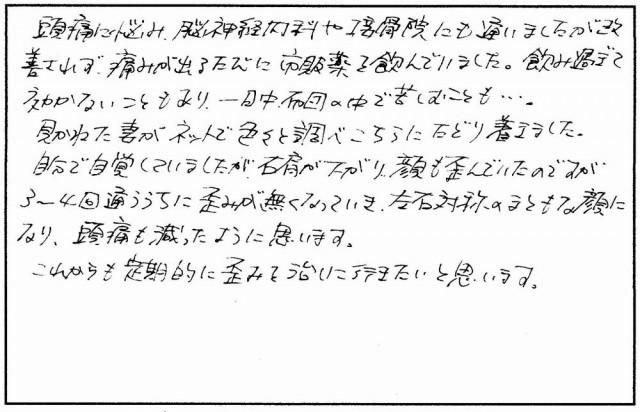 頭痛に悩み、脳神経内科や接骨院にも通いましたが改
善されず、痛みが出るたびに市販薬を飲んでいました。飲み過ぎて
効かないこともあり、一日中布団の中で苦しむことも…。
見かねた妻がネットで色々と調べこちらにたどり着きました。
自分で自覚していましたが、右肩が下がり、顔も歪んでいたのですが
3〜4回通ううちに歪みが無くなっていき、左右対称のまともな顔に
なり、頭痛も減ったように思います。
これからも定期的に歪みを治しに行きたいと思います。